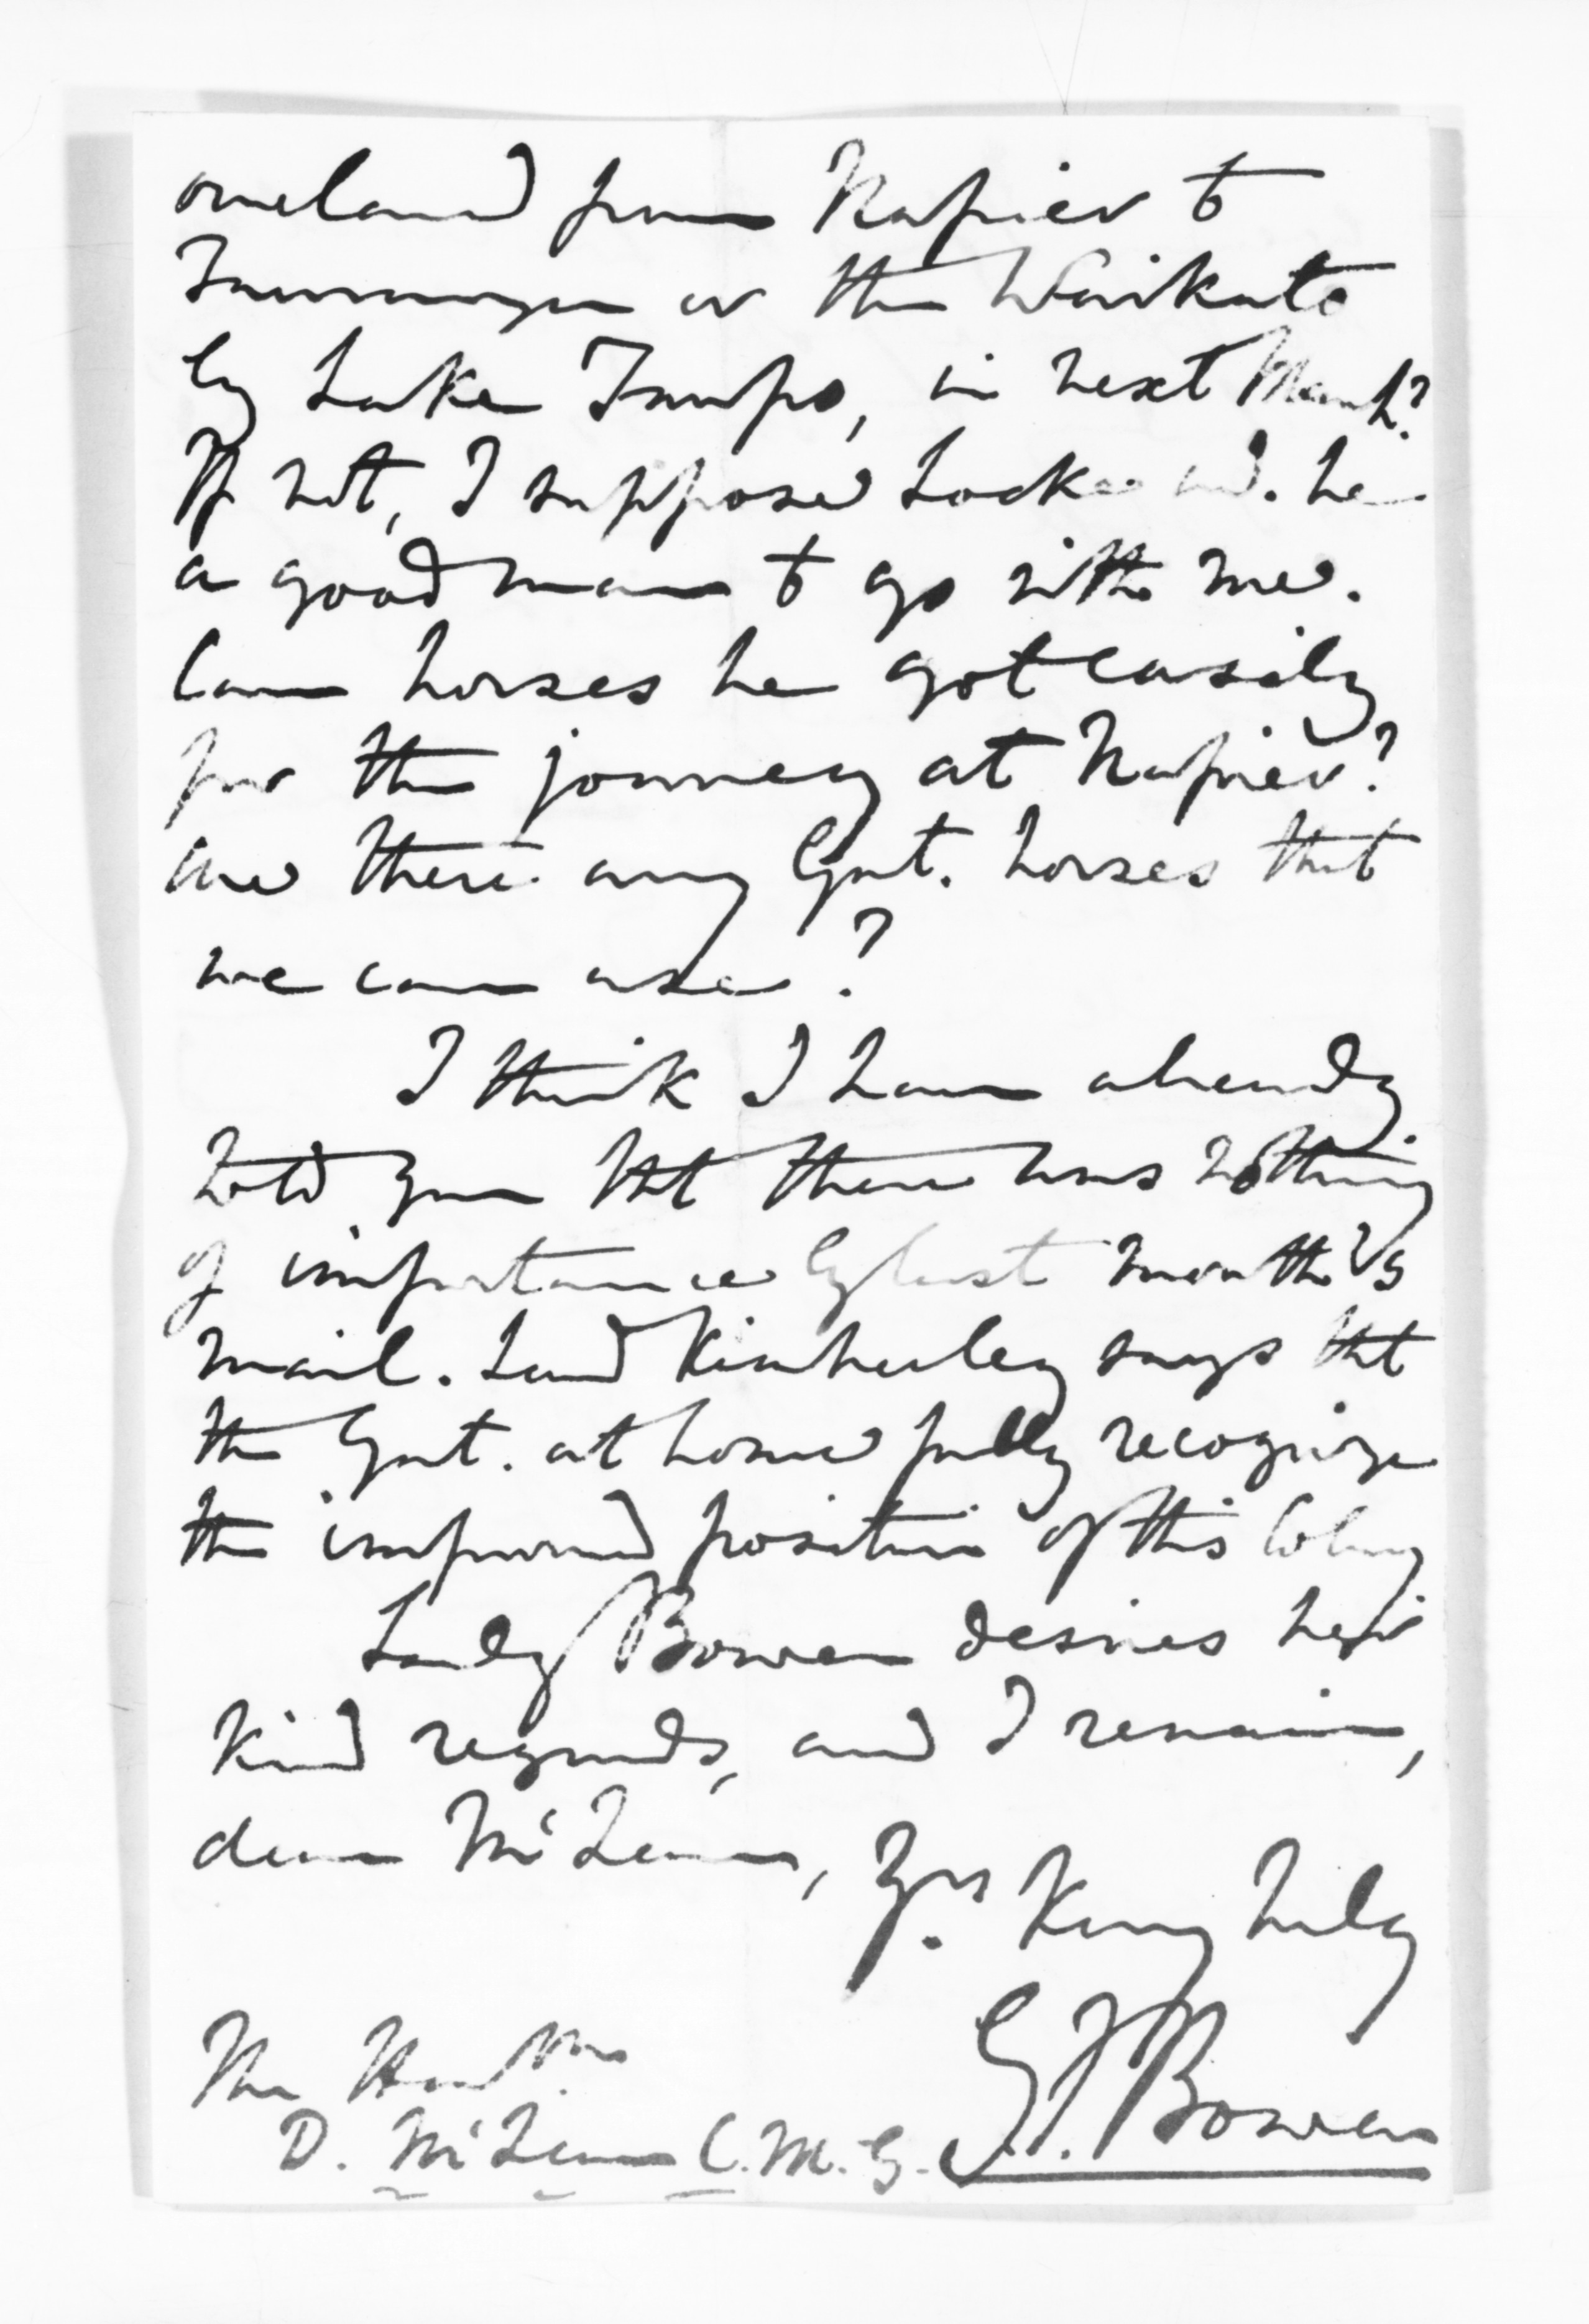 overland from Napier to
Tauranga or the Waikato
by Lake Taupo, in next March?
If not, I suppose Locke wd. be
a good man to go with me.
Can horses be got easily
for the journey at Napier?
Are there any Govt. horses that
we can use?
I think I have already
told you tht there was nothing
of importance by last month's
mail. Lord Kimberley says tht
the Govt. at home fully recognize
the improved position of this Colony
Lady Bowen desires her
kind regards, and I remain,
dear McLean, Yrs. very truly
G. F. Bowen
The Honble
D. McLean C.M.G.